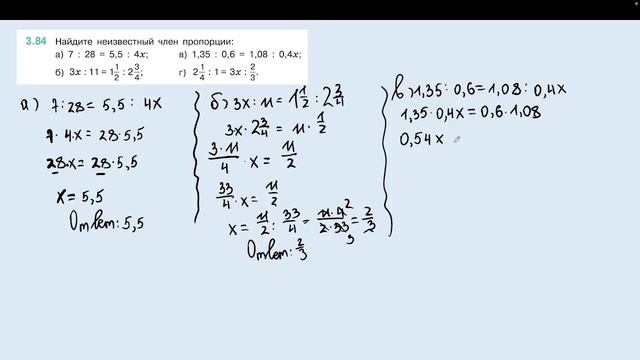 3.84 Найдите неизвестный член пропорции:
а) 7 : 28 = 5,5 : 4x; в) 1,35 : 0,6 = 1,08 : 0,4x;
б) 3x : 11 = 1 1/2 : 2 3/4; г) 2 1/4 : 1 = 3x : 2/3.
а) 7:28 = 5,5 : 4x
7 · 4x = 28 · 5,5
28·x = 28·5,5
x = 5,5
Ответ: 5,5
б) 3x : 11 = 1 1/2 : 2 3/4
3x · 2 3/4 = 11 · 1/2
3·11/4 · x = 11/2
33/4 · x = 11/2
x = 11/2 : 33/4 = 11·4 2/2·33 3 = 2/3
Ответ: 2/3
в) 1,35 : 0,6 = 1,08 : 0,4x
1,35 · 0,4x = 0,6 · 1,08
0,54x